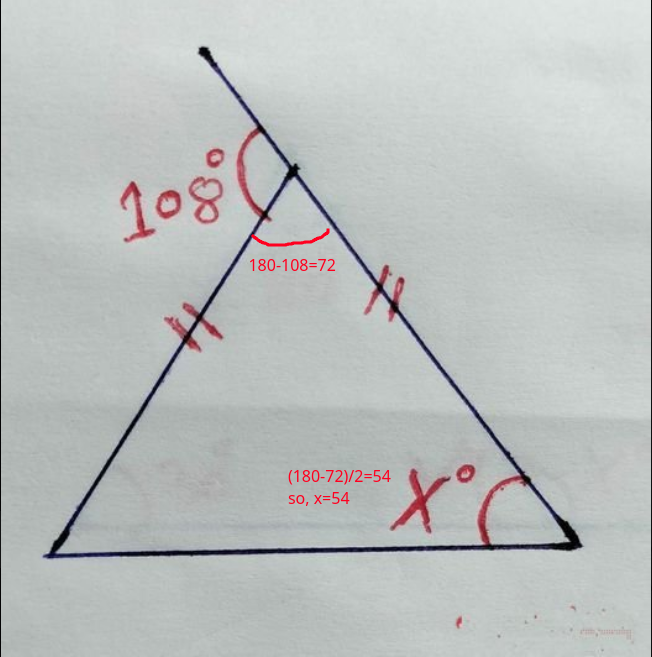 108°
180-108=72
(180-72)/2=54
so, x=54
X°